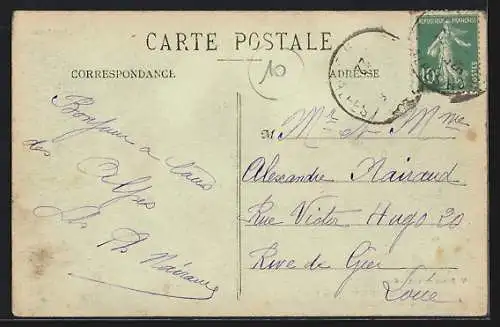 CARTE POSTALE
CORRESPONDANCE
ADRESSE
10
REPUBLIQUE FRANÇAISE
10c
POSTES
Bonjour a tous
des Alpes
Nairaud
M Mr et Mme
Alexandre Nairaud
Rue Victor Hugo 20
Rive de Gier
Loire